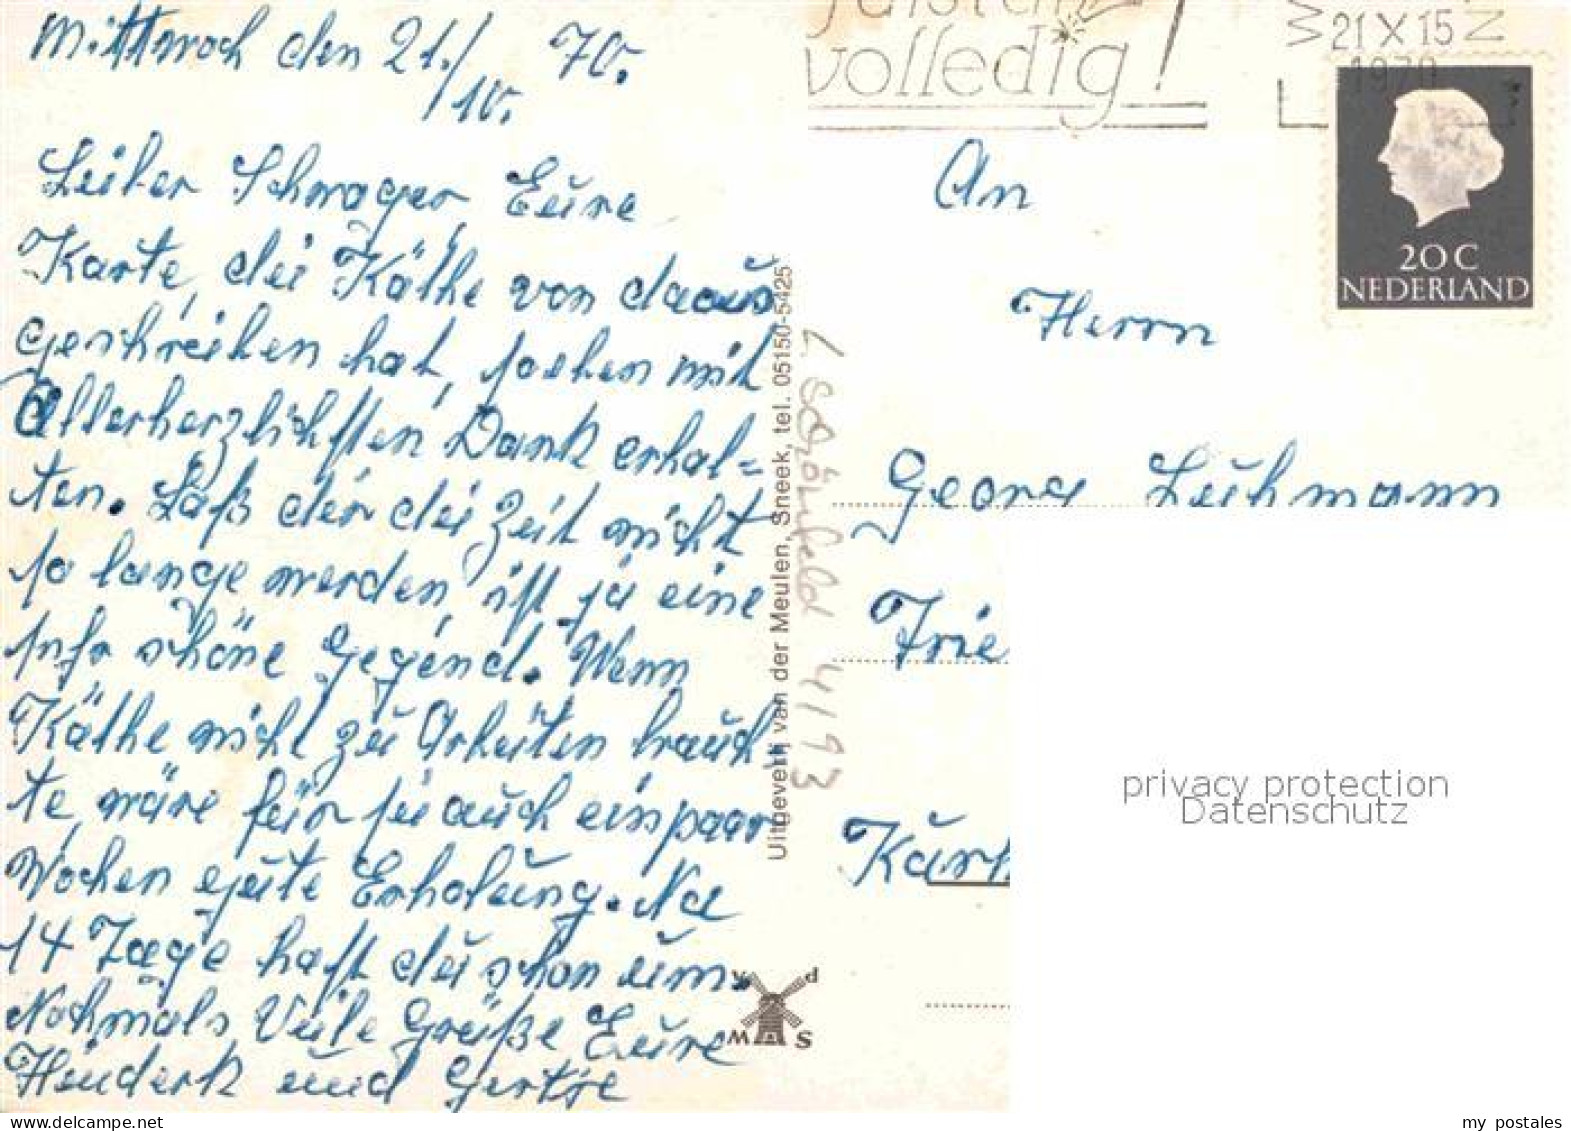 Mittwoch den 21./10. 70.
Leiber Schwager, Eure
Karte, dei Käthe von daaus
geschreiben hat, soeben mit
Allerherzlichsten Dank erhal=
ten. Laß dir dei Zeit nicht
so lange werden, ist ja eine
sehr schöne Gegend. Wenn
Käthe nicht zu Arbeiten brauch
te, wäre für sei auch ein paar
Wochen gute Erholung. Na
14 Tage hast du schon um.
Nohmals Veile Grüße Eure
Hinderk und Gertje
volledig!
21 X 15
1970
20 C
NEDERLAND
An
Herrn
Georg Luhmann
Frie
Uitgeverij van der Meulen, Sneek, tel. 05150-5425
L Schönfeld 4193
V D
W S
privacy protection
Datenschutz
delcampe.net
my_postales